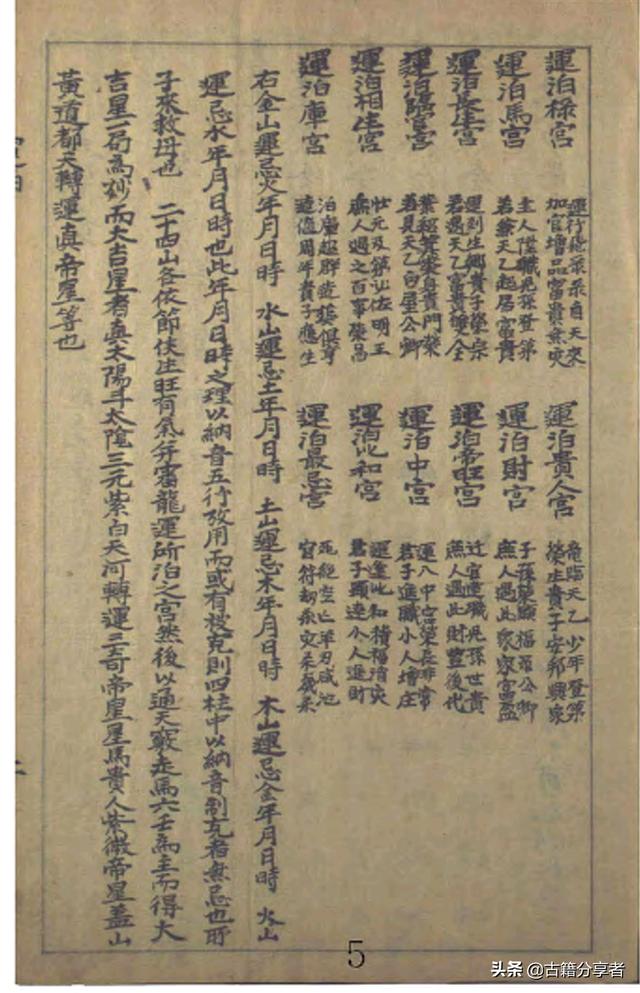 運泊祿宮
自天來
加官增品富貴無灾
運泊貴人宮
臨天乙少年登第
榮生貴子安邦興家
運泊馬宮
主人陞職兒孫登第
若兼天乙起居富貴
運泊財宮
子孫榮顯福公卿
庶人遇此家家富盈
運泊長生宮
運到生鄉貴子榮宗
若遇天乙富貴雙全
運泊帝旺宮
迁官進職兒孫世貴
庶人遇此財豐後代
運泊臨官宮
身貴門榮
若見天乙白屋公卿
運泊中宮
運入中宮榮長非常
君子進職小人增庄
運泊相生宮
壯元及第以佐明王
庶人遇之百事榮昌
運泊比和宮
運逢比和積福消灾
君子顯達小人進財
運泊庫宮
泊庫
遠值周年貴子應生
運泊最忌宮
死絕空亡羊刃咸池
官符劫杀灾杀歲杀
右金山運忌火年月日時 水山運忌土年月日時 土山運忌木年月日時 木山運忌金年月日時 火山
運忌水年月日時也此年月日時之理以納音五行攷用而或有被克則四柱中以納音制克者無忌也所
子來救母也 二十四山各依節候生旺有氣并審龍運所泊之宮然後以通天竅走馬六壬為主而得大
吉星一局為妙而大吉星者真太陽斗太陰三元紫白天河轉運三奇帝星星馬貴人紫微帝星盖山
黃道都天轉運真帝星等也
二
5
头条 @古籍分享者